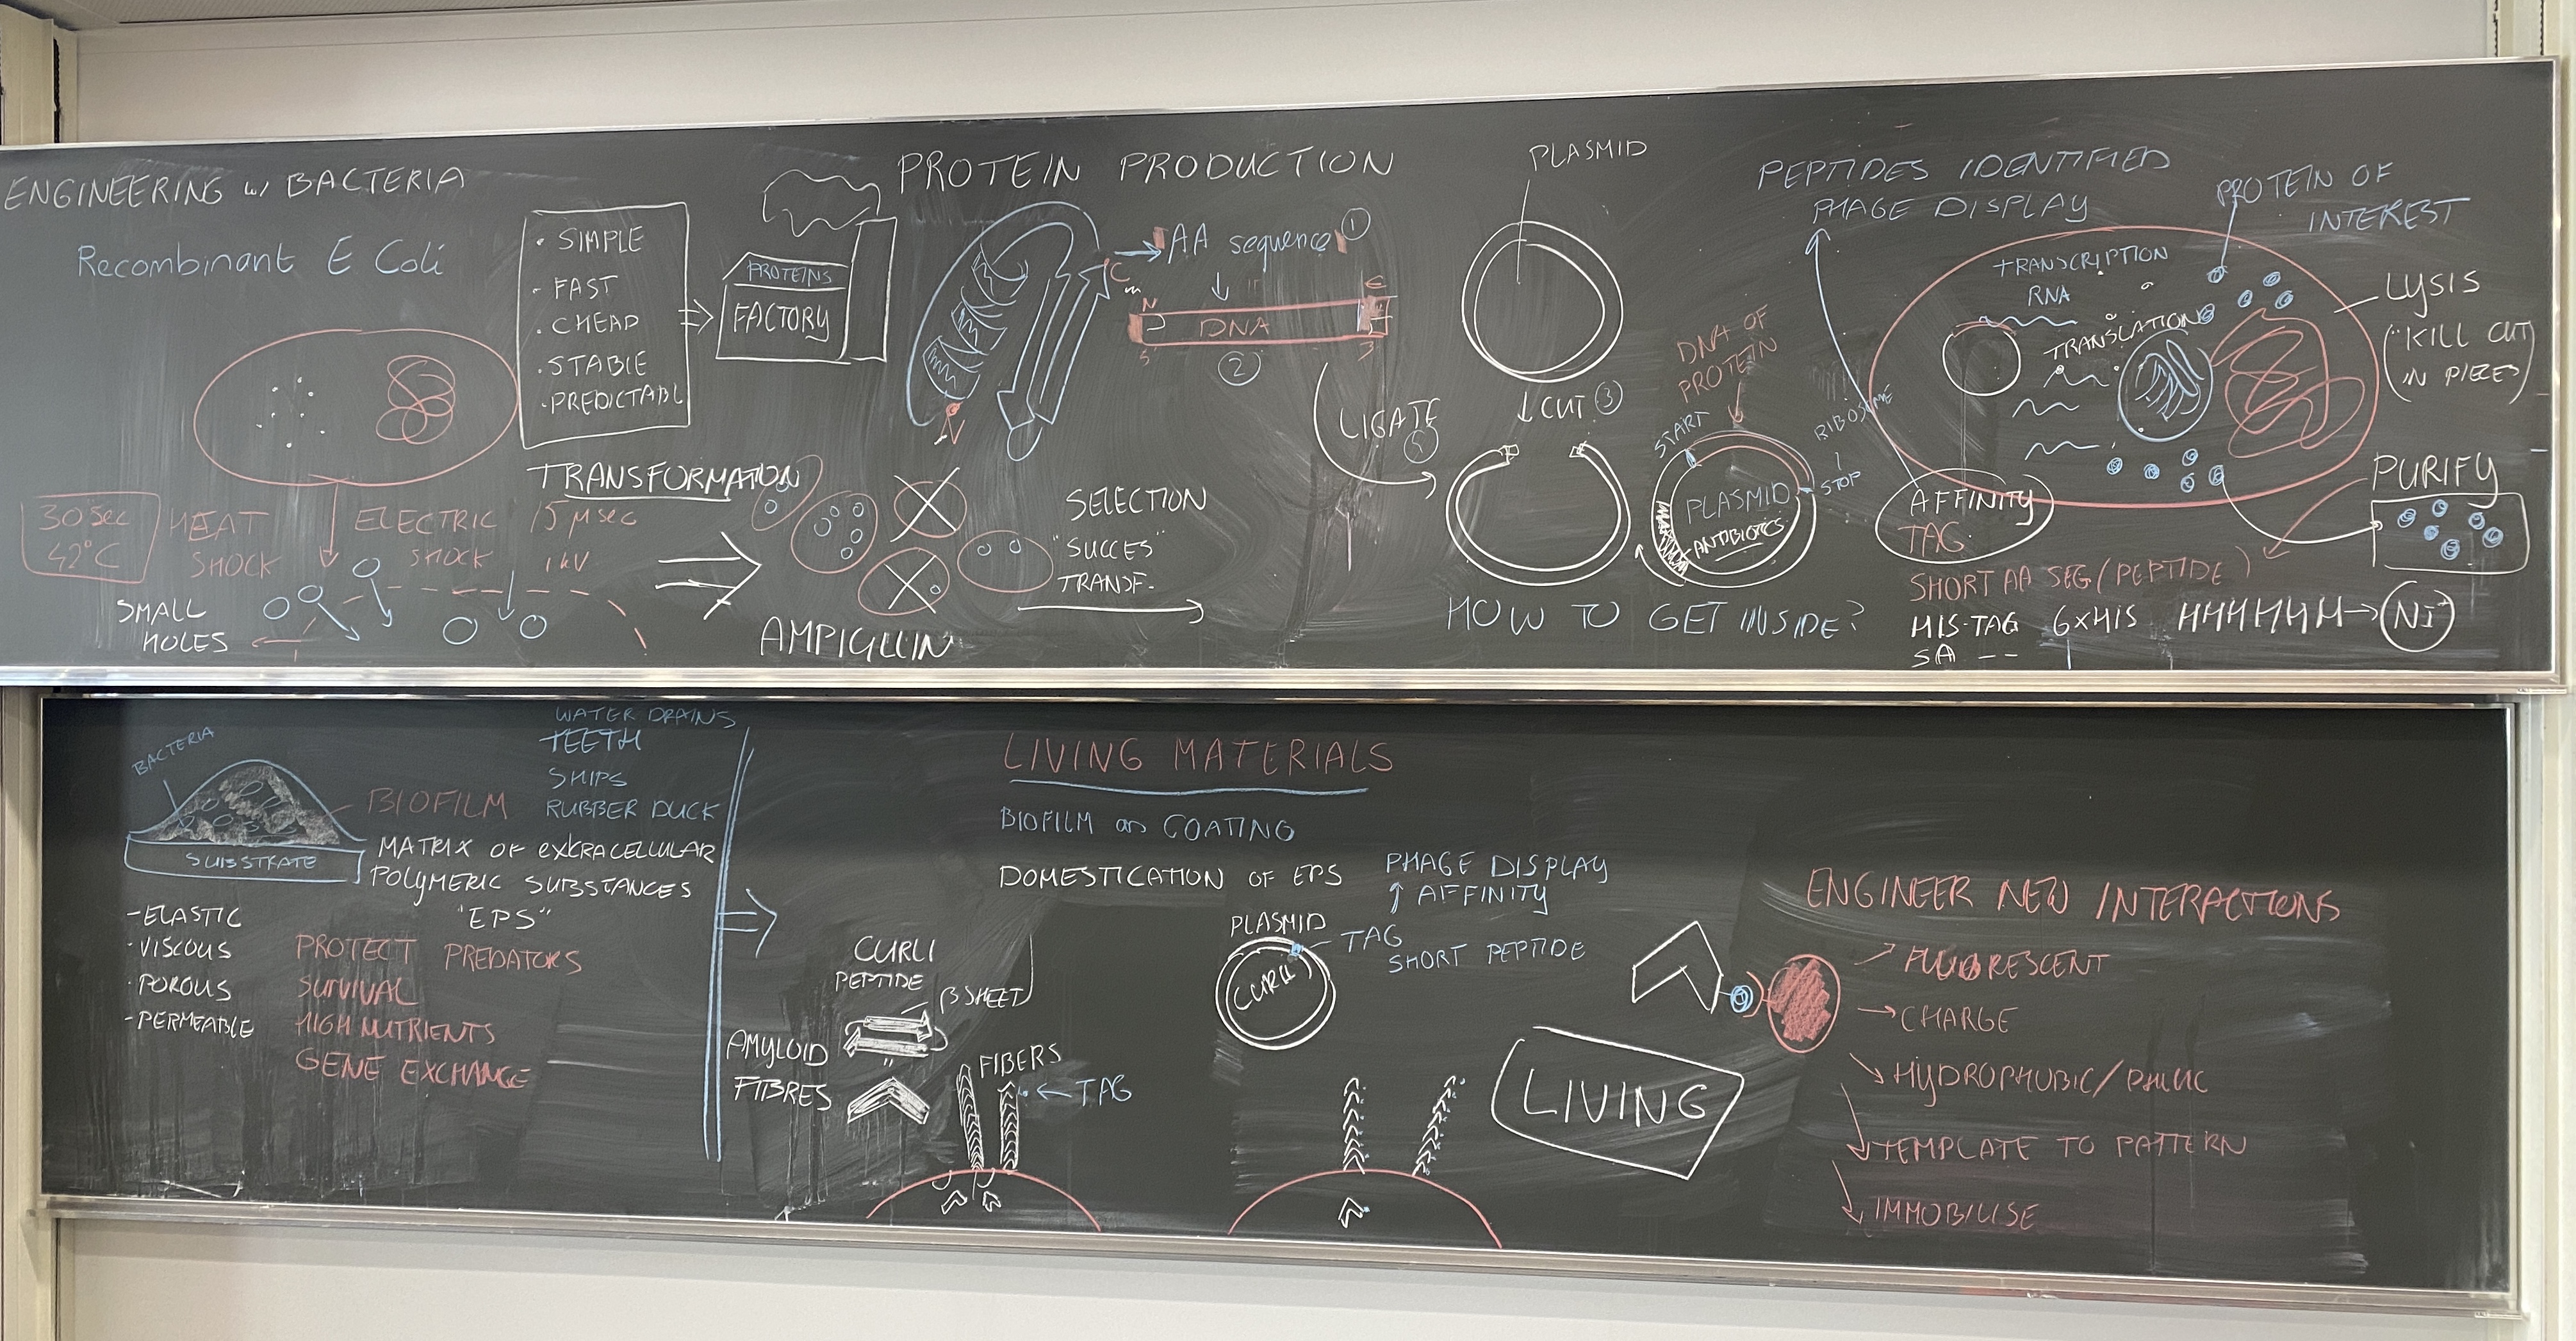 ENGINEERING w/ BACTERIA
Recombinant E Coli
· SIMPLE
- FAST
· CHEAP
· STABLE
· PREDICTABL
PROTEINS
FACTORY
30 Sec
42°C
HEAT
SHOCK
ELECTRIC
SHOCK
15 μsec
1 kV
SMALL
HOLES
TRANSFORMATION
AMPICILLIN
SELECTION
"SUCCES"
TRANSF.
PROTEIN PRODUCTION
AA sequence 1
C
N
N
C
DNA
5
3
2
LIGATE
PLASMID
CUT 3
DNA OF
PROTEIN
START
RIBOSOME
STOP
PLASMID
ANTIBIOTICS
HOW TO GET INSIDE?
PEPTIDES IDENTIFIED
PHAGE DISPLAY
PROTEIN OF
INTEREST
TRANSCRIPTION
RNA
TRANSLATION
LYSIS
("KILL CUT
IN PIECES)
PURIFY
AFFINITY
TAG
SHORT AA SEG (PEPTIDE)
HIS-TAG 6xHIS HHHHHH → Ni
SA --
BACTERIA
SUBSTRATE
BIOFILM
WATER DRAINS
TEETH
SHIPS
RUBBER DUCK
MATRIX OF extracellular
POLYMERIC SUBSTANCES
"EPS"
- ELASTIC
- VISCOUS
· POROUS
- PERMEABLE
PROTECT PREDATORS
SURVIVAL
HIGH NUTRIENTS
GENE EXCHANGE
LIVING MATERIALS
BIOFILM as COATING
DOMESTICATION OF EPS
CURLI
PEPTIDE
β SHEET
AMYLOID
FIBRES
FIBERS
← TAG
PHAGE DISPLAY
↑ AFFINITY
PLASMID
CURLI
TAG
SHORT PEPTIDE
LIVING
ENGINEER NEW INTERACTIONS
FLUORESCENT
→ CHARGE
HYDROPHOBIC/PHILIC
TEMPLATE TO PATTERN
IMMOBILISE